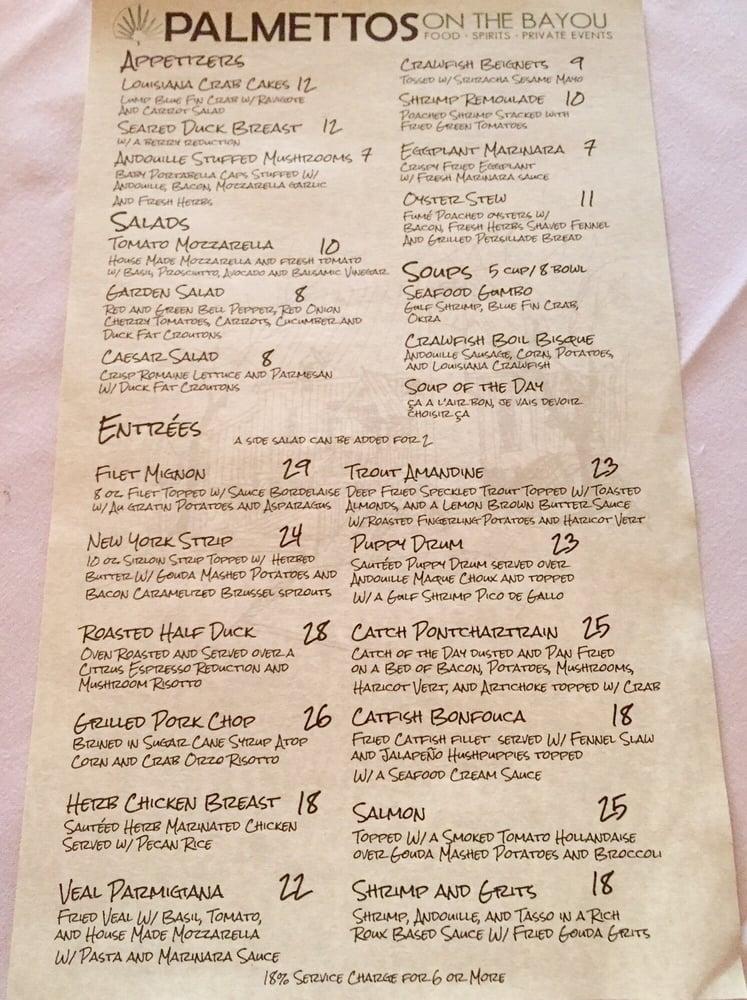 PALMETTOS ON THE BAYOU
FOOD · SPIRITS · PRIVATE EVENTS
APPETIZERS
LOUISIANA CRAB CAKES 12
LUMP BLUE FIN CRAB W/ RAVIGOTE
AND CARROT SALAD
SEARED DUCK BREAST 12
W/ A BERRY REDUCTION
ANDOUILLE STUFFED MUSHROOMS 7
BABY PORTABELLA CAPS STUFFED W/
ANDOUILLE, BACON, MOZZARELLA GARLIC
AND FRESH HERBS
SALADS
TOMATO MOZZARELLA 10
HOUSE MADE MOZZARELLA AND FRESH TOMATO
W/ BASIL, PROSCIUTTO, AVOCADO AND BALSAMIC VINEGAR
GARDEN SALAD 8
RED AND GREEN BELL PEPPER, RED ONION
CHERRY TOMATOES, CARROTS, CUCUMBER AND
DUCK FAT CROUTONS
CAESAR SALAD 8
CRISP ROMAINE LETTUCE AND PARMESAN
W/ DUCK FAT CROUTONS
CRAWFISH BEIGNETS 9
TOSSED W/ SRIRACHA SESAME MAYO
SHRIMP REMOULADE 10
POACHED SHRIMP STACKED WITH
FRIED GREEN TOMATOES
EGGPLANT MARINARA 7
CRISPY FRIED EGGPLANT
W/ FRESH MARINARA SAUCE
OYSTER STEW 11
FUMÉ POACHED OYSTERS W/
BACON, FRESH HERBS SHAVED FENNEL
AND GRILLED PERSILLADE BREAD
SOUPS 5 CUP/8 BOWL
SEAFOOD GUMBO
GULF SHRIMP, BLUE FIN CRAB,
OKRA
CRAWFISH BOIL BISQUE
ANDOUILLE SAUSAGE, CORN, POTATOES,
AND LOUISIANA CRAWFISH
SOUP OF THE DAY
ÇA A L'AIR BON, JE VAIS DEVOIR
CHOISIR ÇA
ENTRÉES
A SIDE SALAD CAN BE ADDED FOR 2
FILET MIGNON 29
8 OZ. FILET TOPPED W/ SAUCE BORDELAISE
W/ AU GRATIN POTATOES AND ASPARAGUS
NEW YORK STRIP 24
10 OZ SIRLOIN STRIP TOPPED W/ HERBED
BUTTER W/ GOUDA MASHED POTATOES AND
BACON CARAMELIZED BRUSSEL SPROUTS
ROASTED HALF DUCK 28
OVEN ROASTED AND SERVED OVER A
CITRUS ESPRESSO REDUCTION AND
MUSHROOM RISOTTO
GRILLED PORK CHOP 26
BRINED IN SUGAR CANE SYRUP ATOP
CORN AND CRAB ORZO RISOTTO
HERB CHICKEN BREAST 18
SAUTÉED HERB MARINATED CHICKEN
SERVED W/ PECAN RICE
VEAL PARMIGIANA 22
FRIED VEAL W/ BASIL, TOMATO,
AND HOUSE MADE MOZZARELLA
W/ PASTA AND MARINARA SAUCE
TROUT AMANDINE 23
DEEP FRIED SPECKLED TROUT TOPPED W/ TOASTED
ALMONDS, AND A LEMON BROWN BUTTER SAUCE
W/ ROASTED FINGERLING POTATOES AND HARICOT VERT
PUPPY DRUM 23
SAUTÉED PUPPY DRUM SERVED OVER
ANDOUILLE MAQUE CHOUX AND TOPPED
W/ A GULF SHRIMP PICO DE GALLO
CATCH PONTCHARTRAIN 25
CATCH OF THE DAY DUSTED AND PAN FRIED
ON A BED OF BACON, POTATOES, MUSHROOMS,
HARICOT VERT, AND ARTICHOKE TOPPED W/ CRAB
CATFISH BONFOUCA 18
FRIED CATFISH FILLET SERVED W/ FENNEL SLAW
AND JALAPEÑO HUSHPUPPIES TOPPED
W/ A SEAFOOD CREAM SAUCE
SALMON 25
TOPPED W/ A SMOKED TOMATO HOLLANDAISE
OVER GOUDA MASHED POTATOES AND BROCCOLI
SHRIMP AND GRITS 18
SHRIMP, ANDOUILLE, AND TASSO IN A RICH
ROUX BASED SAUCE W/ FRIED GOUDA GRITS
18% SERVICE CHARGE FOR 6 OR MORE